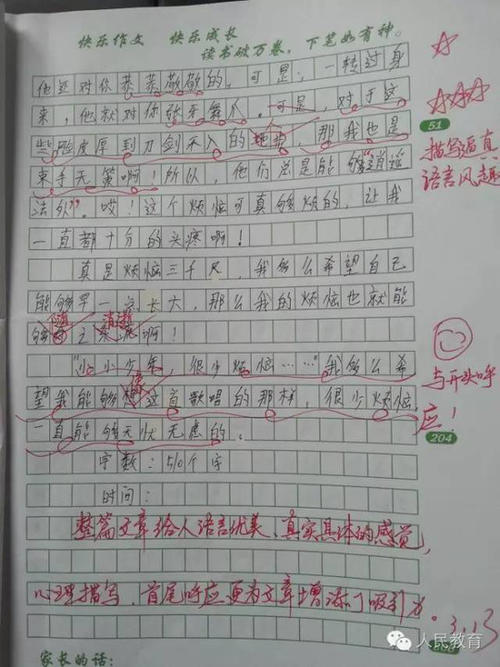 快乐作文 快乐成长
读书破万卷,下笔如有神。
他还对你恭恭敬敬的,可是,一转过身
来,他就对你张牙舞爪。可是,对于这
些脸皮厚到刀剑不入的 ,那我也是
束手无策啊!所以,他们总是能够逍遥
法外”。哎!这个烦恼可真够烦的,让我
一直都十分的头疼啊!
真是烦恼三千尺,我多么希望自己
能够早一点长大,那么我的烦恼也就能
够随之消逝啊!
“小小少年,很少烦恼……”我多么希
望我能够像这首歌唱的那样,很少烦恼,
一直能够无忧无虑的。
字数:510个字
时间:
整篇文章给人语言优美、真实具体的感觉,
心理描写,首尾呼应更为文章增添了吸引力。
3.13
51
描写逼真
语言风趣
与开头呼
应!
204
家长的话:
人民教育